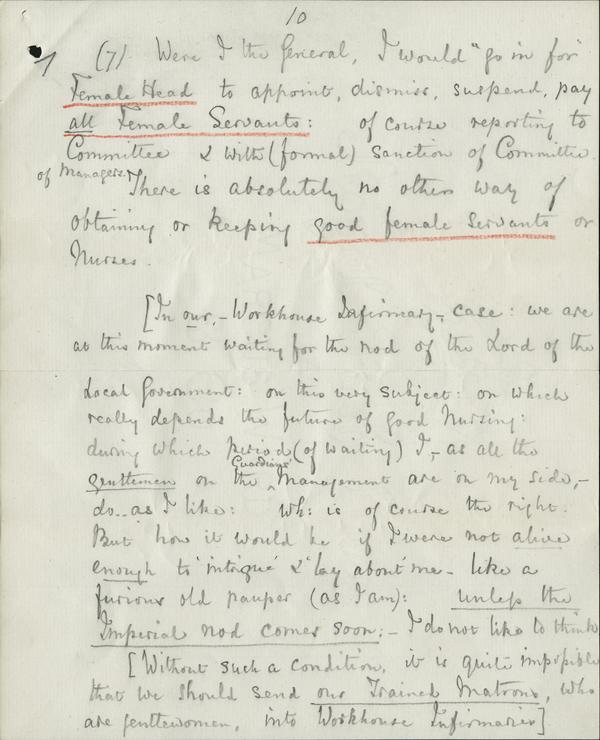 10
(7) Were I the General, I would "go in for"
Female Head to appoint, dismiss, suspend, pay
all Female Servants: of course reporting to
Committee & with (formal) sanction of Committee
of Managers.
There is absolutely no other way of
obtaining or keeping good female servants or
Nurses.
[In our, - Workhouse Infirmary, - case: we are
at this moment waiting for the nod of the Lord of the
Local Government: on this very subject: on which
really depends the future of good Nursing:
during which period (of waiting) I, - as all the
Guardians'
gentlemen on the Management are on my side, -
do.. as I like: wh: is of course the right.
But how it would be if I were not alive
enough to 'intrigue' & 'lay about' me - like a
furious old pauper (as I am): unless the
Imperial nod comes soon: - I do not like to think
[Without such a condition, it is quite impossible
that we should send our Trained Matrons, who
are gentlewomen, into Workhouse Infirmaries]